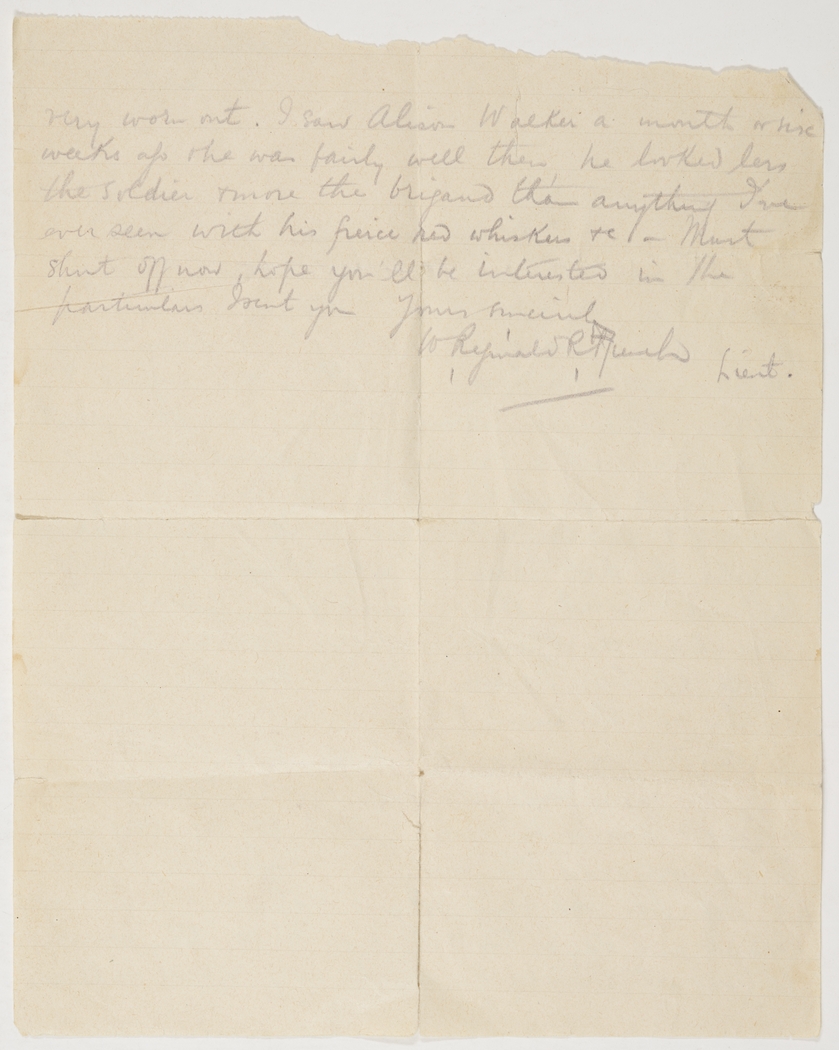 very worn out. I saw Alison Walker a month or six
weeks ago & he was fairly well then, he looked less
the soldier & more the brigand than anything I've
ever seen with his fierce red whiskers &c - Must
shut off now, hope you'll be interested in the
particulars I sent you Yours sincerely
W Reginald R Lieut.